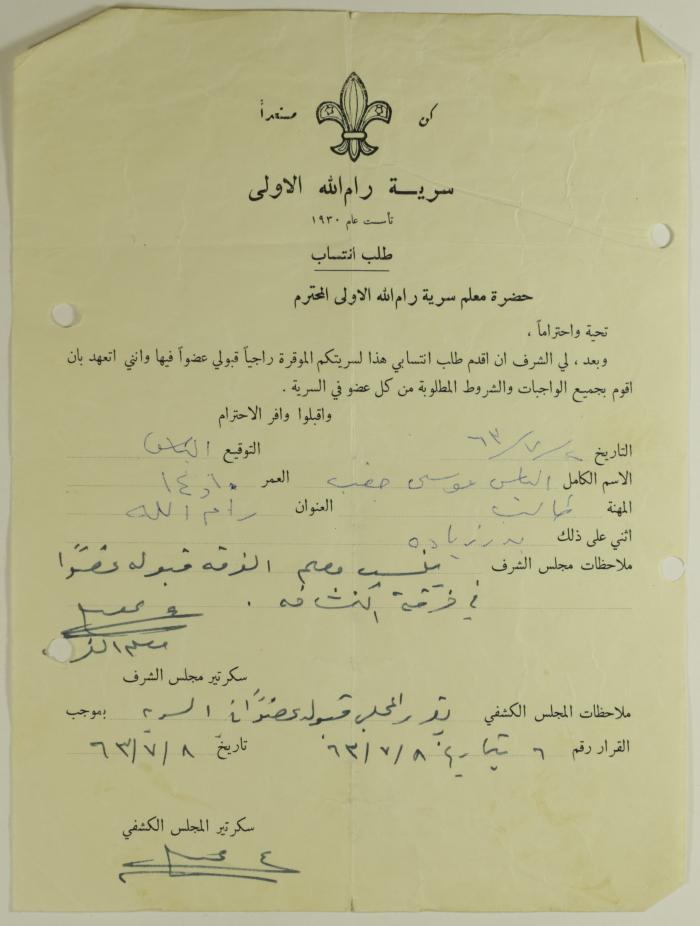 كن مستعداً
سرية رام الله الاولى
تأسست عام ١٩٣٠
طلب انتساب
حضرة معلم سرية رام الله الاولى المحترم
تحية واحتراماً ،
وبعد ، لي الشرف ان اقدم طلب انتسابي هذا لسريتكم الموقرة راجياً قبولي عضواً فيها وانني اتعهد بان
اقوم بجميع الواجبات والشروط المطلوبة من كل عضو في السرية .
واقبلوا وافر الاحترام
التاريخ ٦٣/٧/ التوقيع الياس
الاسم الكامل الياس موسى العمر
المهنة طالب العنوان رام الله
اثني على ذلك بدر زياده
ملاحظات مجلس الشرف معلم الفرقة قبوله عضوًا
في فرقة الكشافه .
سكرتير مجلس الشرف
ملاحظات المجلس الكشفي يقرر المجلس قبوله عضوًا في السرية بموجب
القرار رقم ٦ بتاريخ ٦٣/٧/٨ تاريخ ٦٣/٧/٨
سكرتير المجلس الكشفي